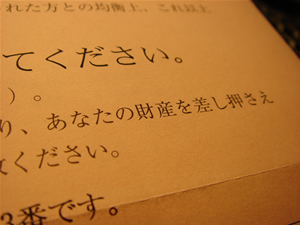 れた方との均衡上、これ以上
てください。
）。
り、あなたの財産を差し押さえ
ください。
3番です。